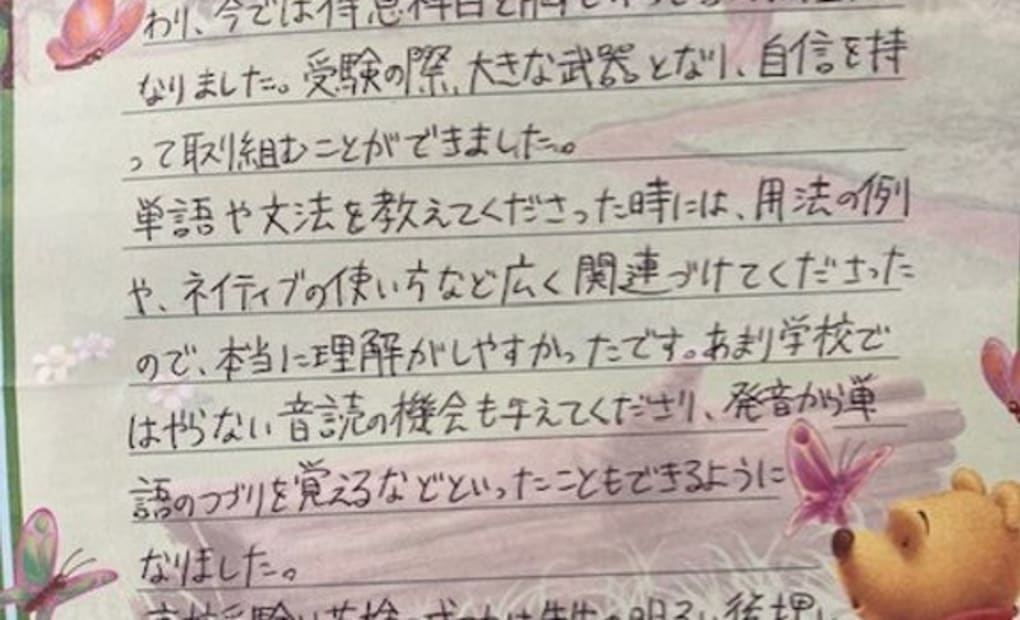 わり、今では得意科目と
なりました。受験の際、大きな武器となり、自信を持
って取り組むことができました。
単語や文法を教えてくださった時には、用法の例
や、ネイティブの使い方など広く関連づけてくださった
ので、本当に理解がしやすかったです。あまり学校で
はやらない音読の機会も与えてくださり、発音から単
語のつづりを覚えるなどといったこともできるように
なりました。